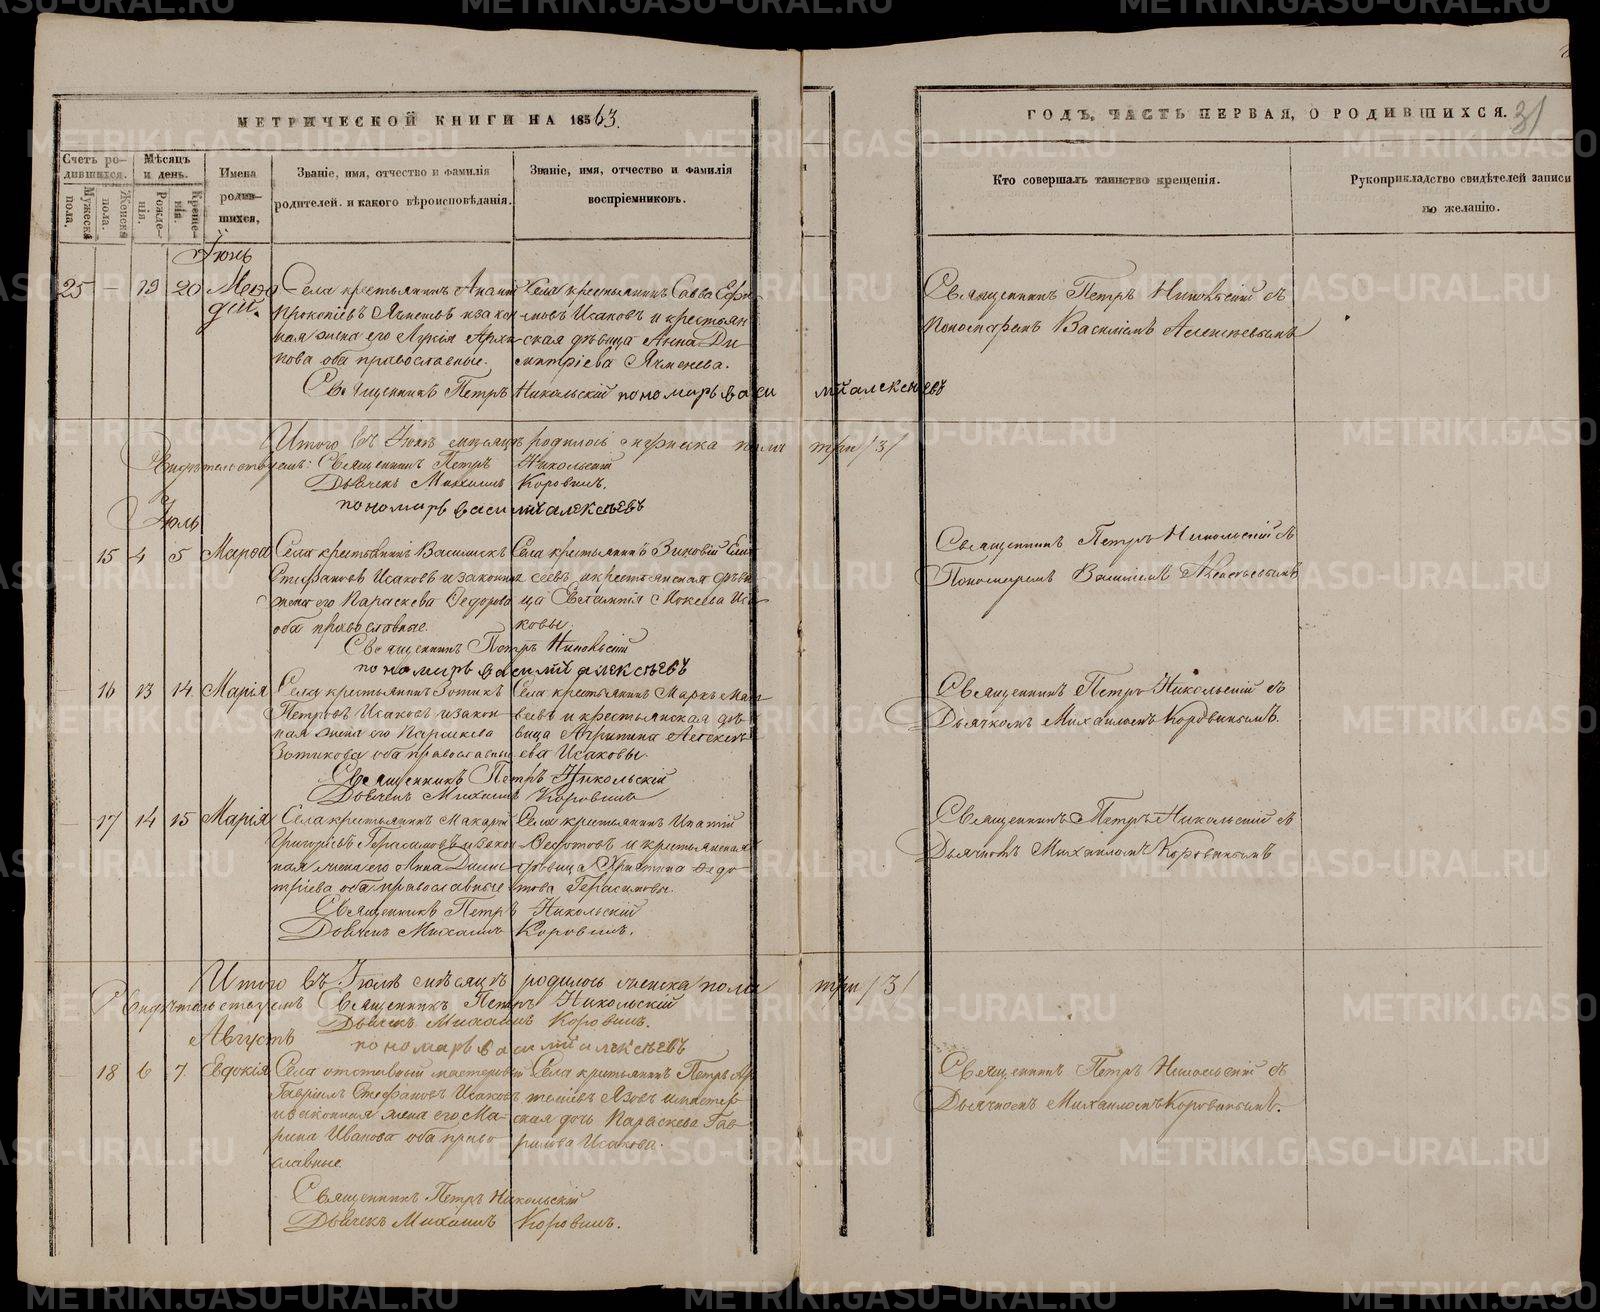 МЕТРИЧЕСКОЙ КНИГИ НА 1863.
ГОДЪ, ЧАСТЬ ПЕРВАЯ, О РОДИВШИХСЯ.
31
Счетъ ро-
дившихся.
Мужеска
пола.
Женска
пола.
Мѣсяцъ
и день.
Рожде-
нія.
Креще-
нія.
Имена
родив-
шихся,
Званіе, имя, отчество и фамилія
родителей. и какого вѣроисповѣданія.
Званіе, имя, отчество и фамилія
воспріемниковъ.
Кто совершалъ таинство крещенія.
Рукоприкладство свидѣтелей записи
по желанію.
Іюнь
25 — 19 20 Меѳо
дій.
Села крестьянинъ
Прокопіевъ и закон
ная жена его Архи-
пова оба православные.
Села крестьянинъ Савва Ефи-
мовъ Исаковъ и крестьян
ская дѣвица Анна Ди
митріева Ячменева.
Священникъ Петръ Никольскій съ
Пономаремъ Василіемъ Алексѣевымъ
Священникъ Петръ Никольскій пономарь васи лій алексѣевъ
Итого въ Іюнѣ мѣсяцѣ родилось пола три /3/
Свидѣтельствуемъ: Священникъ Петръ Никольскій
Дьячекъ Михаилъ Коровинъ.
пономарь василій алексѣевъ
Іюль
15 4 5 Марѳа
Села крестьянинъ
Стефановъ Исаковъ и законная
жена его Параскева Ѳедорова
оба православные.
Села крестьянинъ Зиновій
сеевъ и крестьянская дѣви
ца Евгенія Мокеева Иса
ковы.
Священникъ Петръ Никольскій съ
Пономаремъ Василіемъ Алексѣевымъ
Священникъ Петръ Никольскій
пономарь василій алексѣевъ
16 13 14 Марія
Села крестьянинъ Зотикъ
Петровъ Исаковъ и закон
ная жена его Параскева
Зотикова оба православные
Села крестьянинъ Маркъ Мат
веевъ и крестьянская дѣ
вица Агрипина Алексѣ
ева Исаковы.
Священникъ Петръ Никольскій съ
Дьячкомъ Михаиломъ Коровинымъ.
Священникъ Петръ Никольскій
Дьячекъ Михаилъ Коровинъ
17 14 15 Марія
Села крестьянинъ Макарій
Григорьевъ Герасимовъ и закон
ная жена его Анна Дими
тріева оба православные
Села крестьянинъ Ипатій
Ѳедотовъ и крестьянская
дѣвица Христина Ѳедо
това Герасимовы.
Священникъ Петръ Никольскій съ
Дьячкомъ Михаиломъ Коровинымъ
Священникъ Петръ Никольскій
Дьячекъ Михаилъ Коровинъ.
Итого въ Іюлѣ мѣсяцѣ родилось женска пола три /3/
Свидѣтельствуемъ Священникъ Петръ Никольскій
Дьячекъ Михаилъ Коровинъ.
пономарь василій алексѣевъ
Августъ
18 6 7. Евдокія
Села отставный мастеровый
Гавріилъ Стефановъ Исаковъ
и законная жена его Ма-
рина Иванова оба право-
славные
Села крестьянинъ Петръ Ар
темьевъ Язовъ и мастер
ская дочь Параскева Гав
рилова Исакова.
Священникъ Петръ Никольскій съ
Дьячкомъ Михаиломъ Коровинымъ.
Священникъ Петръ Никольскій
Дьячекъ Михаилъ Коровинъ.
METRIKI.GASO-URAL.RU